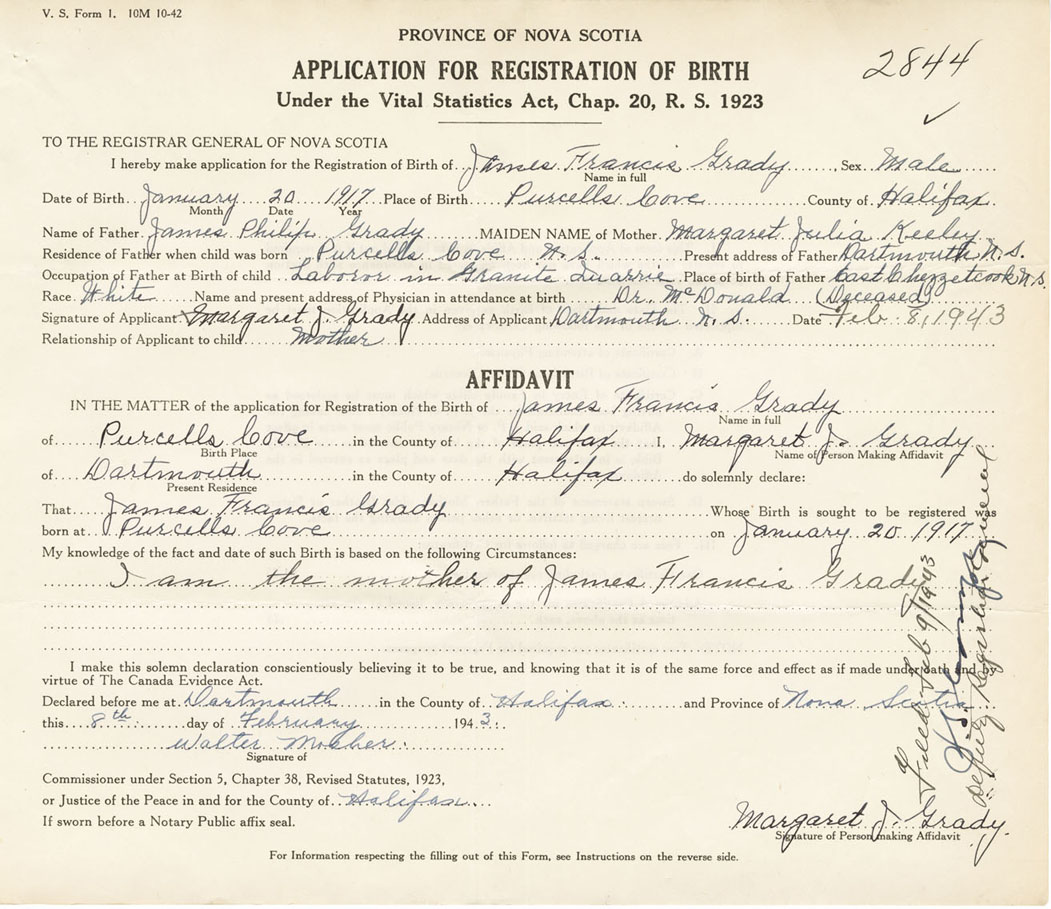 V. S. Form 1. 10M 10-42
PROVINCE OF NOVA SCOTIA
2844
APPLICATION FOR REGISTRATION OF BIRTH
Under the Vital Statistics Act, Chap. 20, R. S. 1923
TO THE REGISTRAR GENERAL OF NOVA SCOTIA
I hereby make application for the Registration of Birth of James Francis Grady, Sex Male
Name in full
Date of Birth January 20 1917 Place of Birth Purcells Cove County of Halifax
Month Date Year
Name of Father James Philip Grady MAIDEN NAME of Mother Margaret Julia Keeley
Residence of Father when child was born Purcells Cove N.S. Present address of Father Dartmouth N.S.
Occupation of Father at Birth of child Laboror in Granite Quarrie Place of birth of Father East Chezzetcook N.S.
Race White Name and present address of Physician in attendance at birth Dr. McDonald (Deceased)
Signature of Applicant Margaret J. Grady Address of Applicant Dartmouth N.S. Date Feb 8, 1943
Relationship of Applicant to child Mother
AFFIDAVIT
IN THE MATTER of the application for Registration of the Birth of James Francis Grady
Name in full
of Purcells Cove in the County of Halifax I, Margaret J. Grady
Birth Place Name of Person Making Affidavit
of Dartmouth in the County of Halifax do solemnly declare:
Present Residence
That James Francis Grady Whose Birth is sought to be registered was
born at Purcells Cove on January 20 1917
My knowledge of the fact and date of such Birth is based on the following Circumstances:
I am the mother of James Francis Grady
I make this solemn declaration conscientiously believing it to be true, and knowing that it is of the same force and effect as if made under oath and by
virtue of The Canada Evidence Act.
Declared before me at Dartmouth in the County of Halifax and Province of Nova Scotia
this 8th day of February 1943.
Walter Mosher
Signature of
Commissioner under Section 5, Chapter 38, Revised Statutes, 1923,
or Justice of the Peace in and for the County of Halifax
If sworn before a Notary Public affix seal.
Margaret J. Grady.
Signature of Person making Affidavit
For Information respecting the filling out of this Form, see Instructions on the reverse side.
Filed Feb 9/1943
Deputy Registrar General